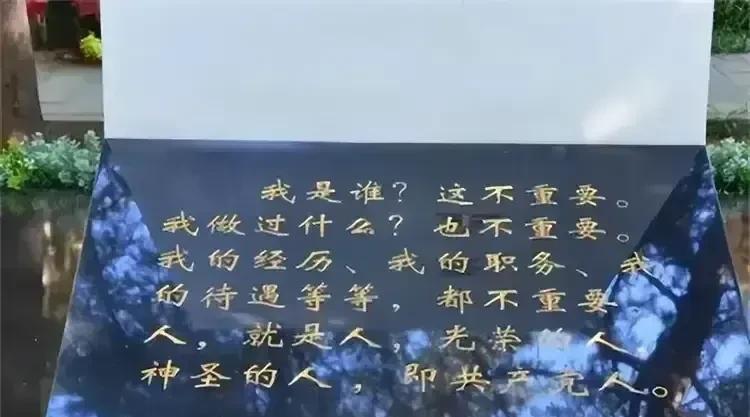 我是谁？这不重要。
我做过什么？也不重要。
我的经历、我的职务、我
的待遇等等，都不重要
人，就是人，光荣的人
神圣的人，即共产党人。